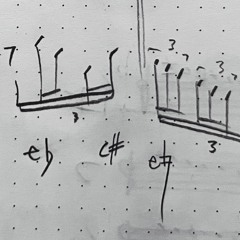 7 3 3
3 3
eb c# e#